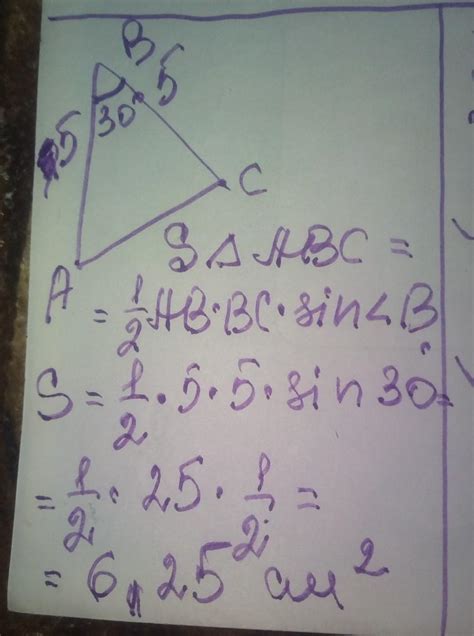 B
5
30°
5
C
A
S△ABC =
= 1/2 AB·BC·sin∠B
S = 1/2 · 5 · 5 · sin 30° =
= 1/2 · 25 · 1/2 =
= 6,25 см²